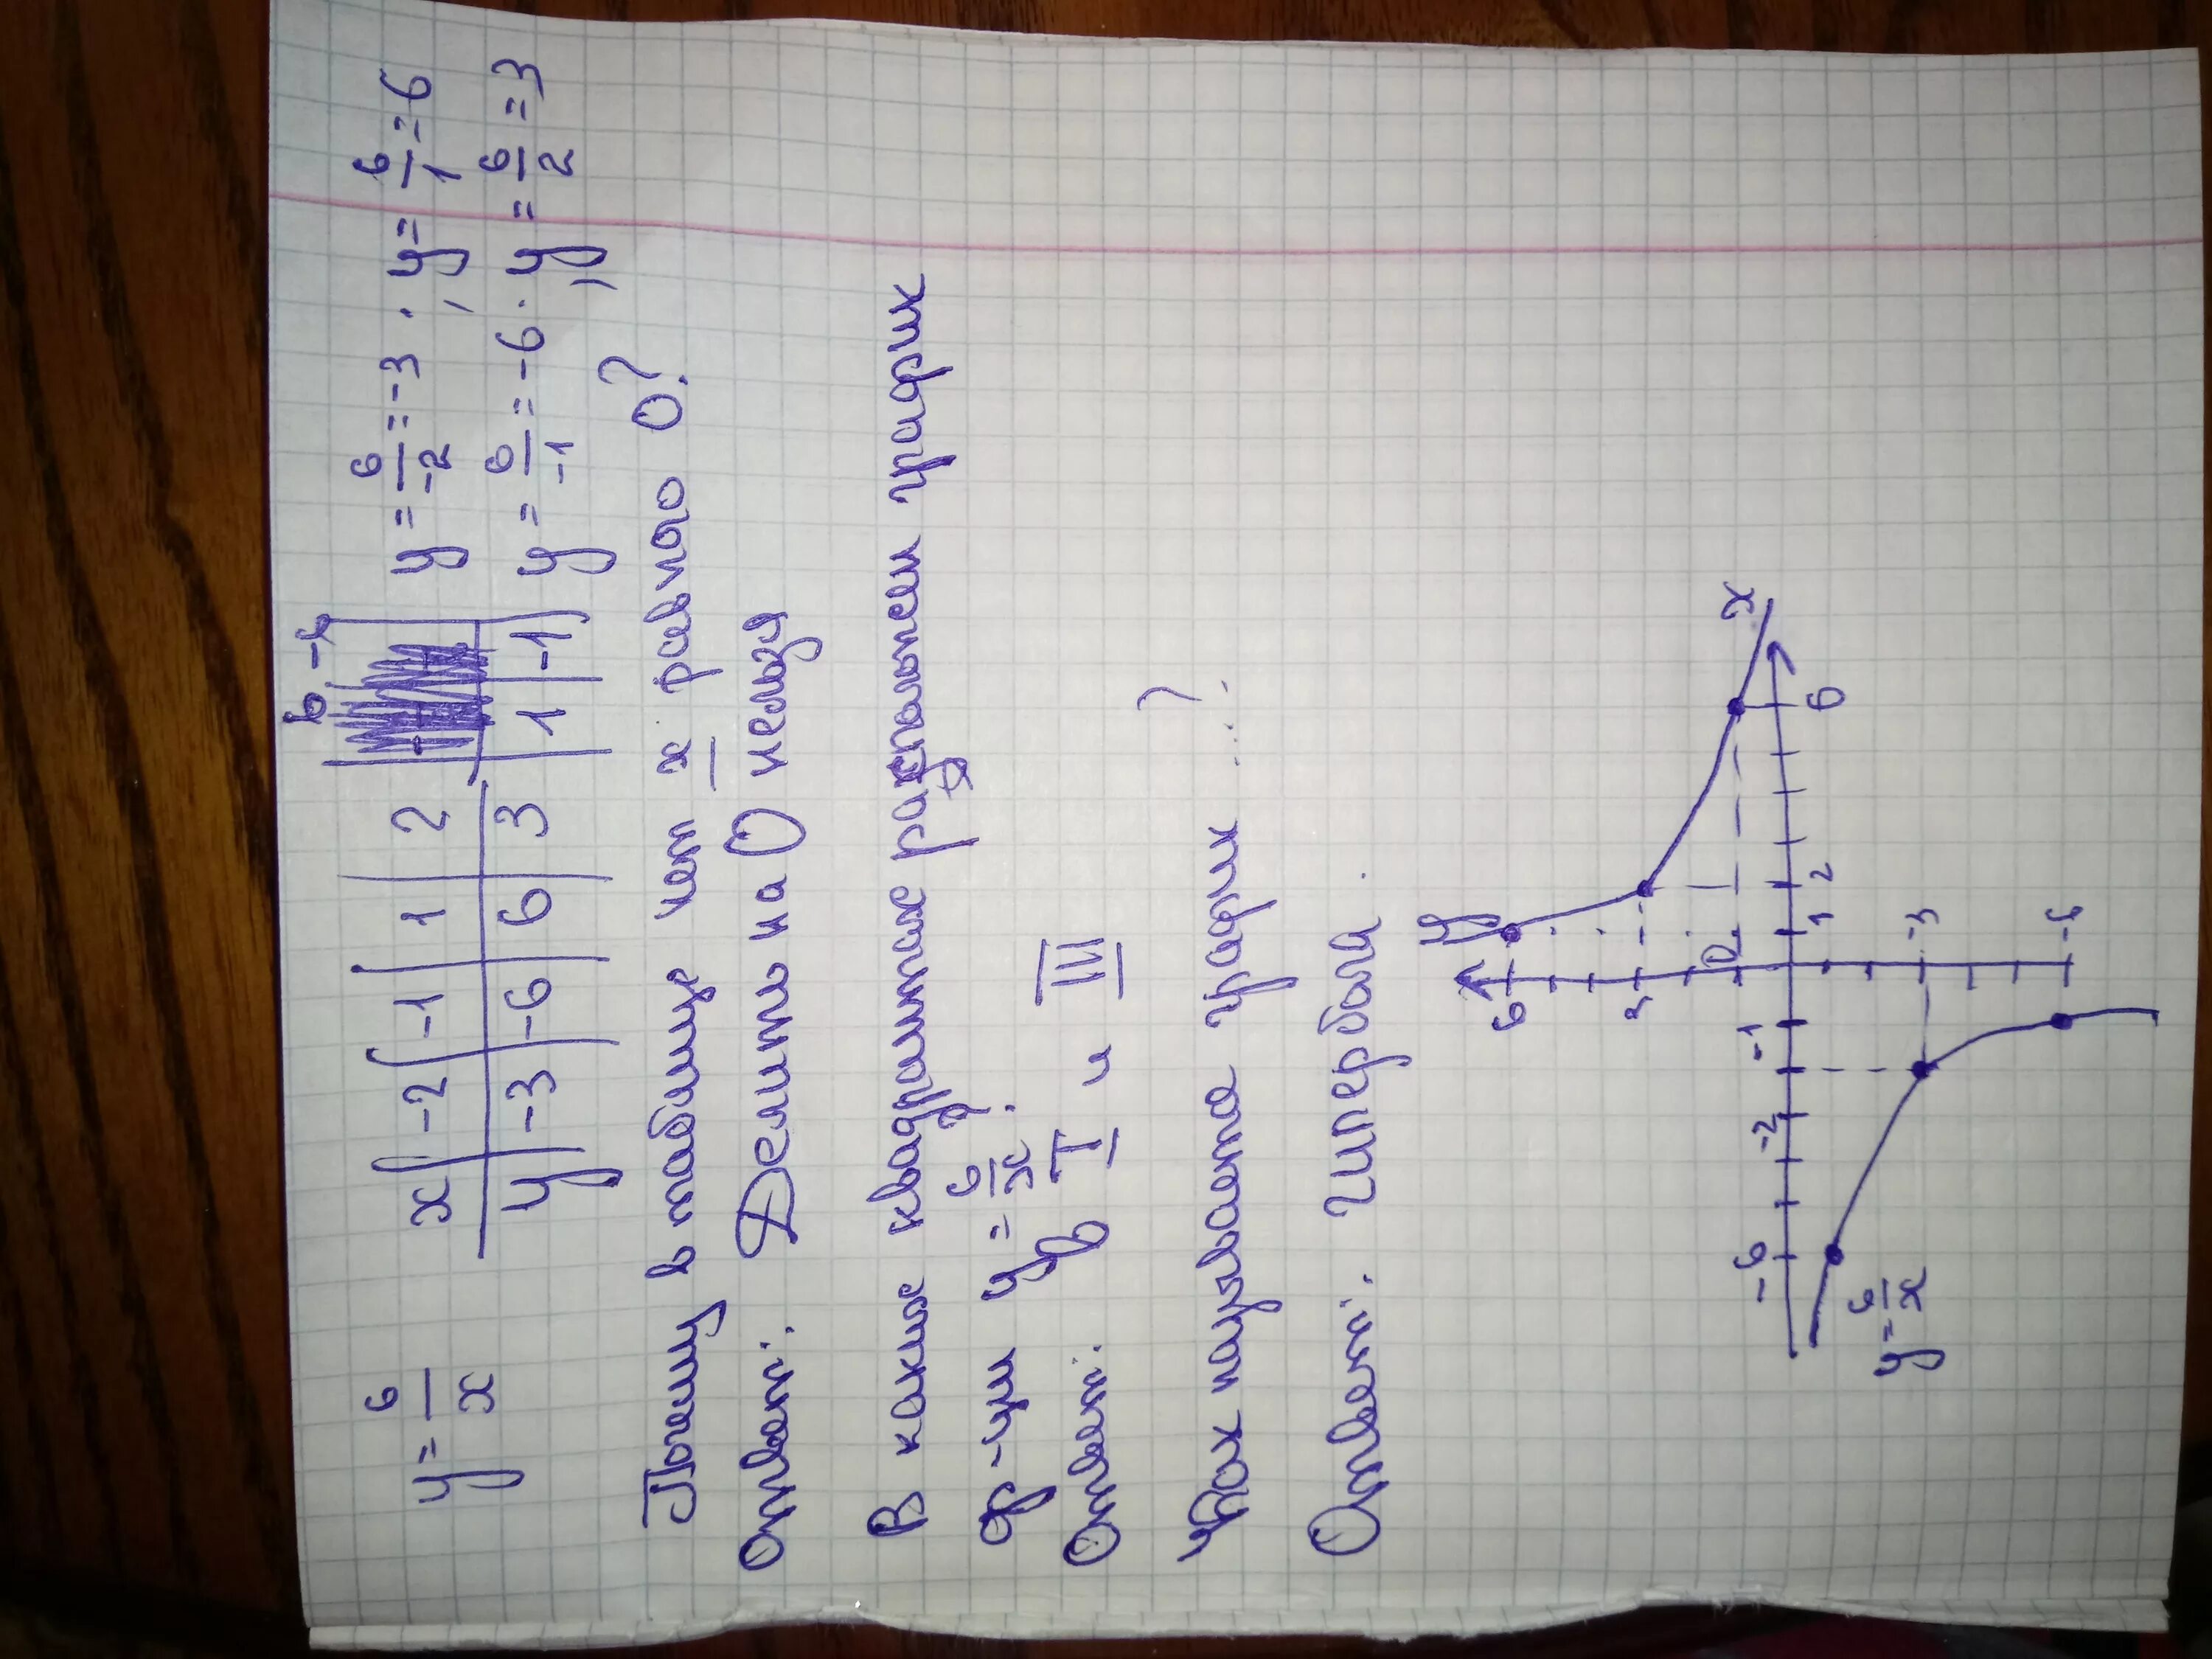 y = 6/x
x | -2 | -1 | 1 | 2 | 6 | -6
y | -3 | -6 | 6 | 3 | 1 | -1
y = 6/-2 = -3, y = 6/1 = 6
y = 6/-1 = -6, y = 6/2 = 3
Почему в таблице нет x равного 0?
Ответ: Делить на 0 нельзя
В каких квадрантах расположен график
ф-ции y = 6/x?
Ответ: в I и III
Как называется график ...?
Ответ: гипербола.
y
6
3
0
1
2
6
x
-6
-2
-1
-3
-6
y = 6/x